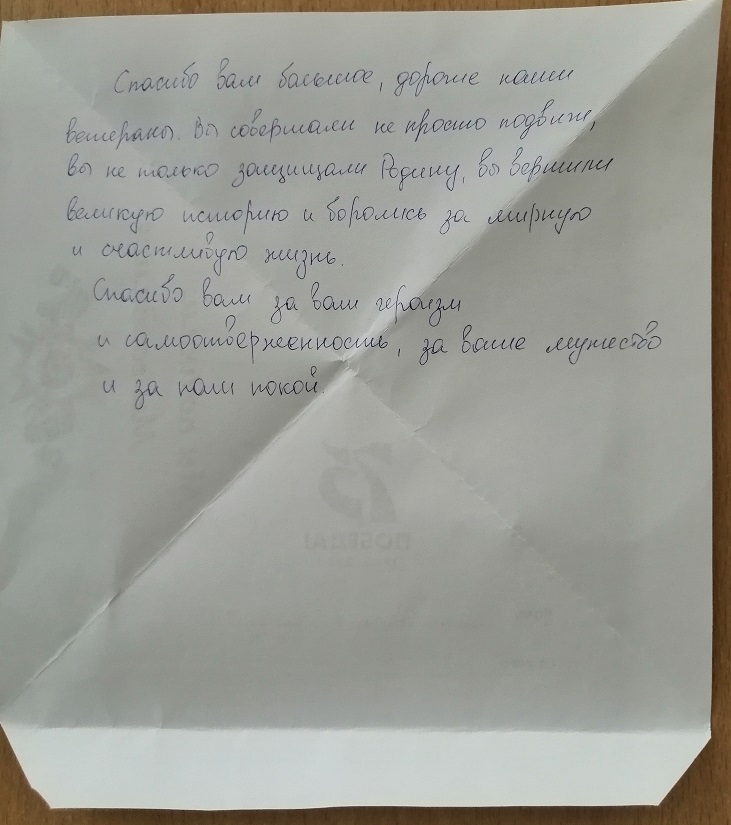 Спасибо вам большое, дорогие наши
ветераны. Вы совершали не просто подвиги,
вы не только защищали Родину, вы вершили
великую историю и боролись за мирную
и счастливую жизнь.
Спасибо вам за ваш героизм
и самоотверженность, за ваше мужество
и за наш покой.
75
ПОБЕДА!